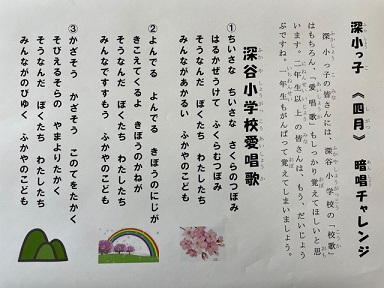 深小っ子 《四月》 暗唱チャレンジ
深小っ子の皆さんには、深谷小学校の「校歌」
はもちろん、「愛唱歌」もしっかり覚えてほしいと思
います。二年生以上の皆さんは、もう、だいじょう
ぶですね。一年生もがんばって覚えてしまいましょう。
深谷小学校愛唱歌
①ちいさな ちいさな さくらのつぼみ
はるかぜうけて ふくらむつぼみ
そうなんだ ぼくたち わたしたち
みんながあかるい ふかやのこども
②よんでる よんでる きぼうのにじが
きこえてくるよ きぼうのかねが
そうなんだ ぼくたち わたしたち
みんなですすもう ふかやのこども
③かざそう かざそう このてをたかく
そびえるそらの やまよりたかく
そうなんだ ぼくたち わたしたち
みんながのびゆく ふかやのこども